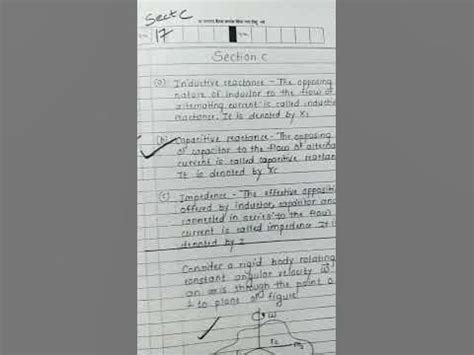 Sect C
17
Section C
(a) Inductive reactance - The opposing
nature of inductor to the flow of
alternating current is called inductive
reactance. It is denoted by XL
(b) Capacitive reactance - The opposing
of capacitor to the flow of alternat
current is called capacitive reactan
It is denoted by XC
(c) Impedence - The effective oppositi
offered by inductor, capacitor and
connected in series to the flow
current is called impedence It i
denoted by Z
Consider a rigid body rotating
constant angular velocity ω
an axis through the point O
⊥ to plane of figure
ω